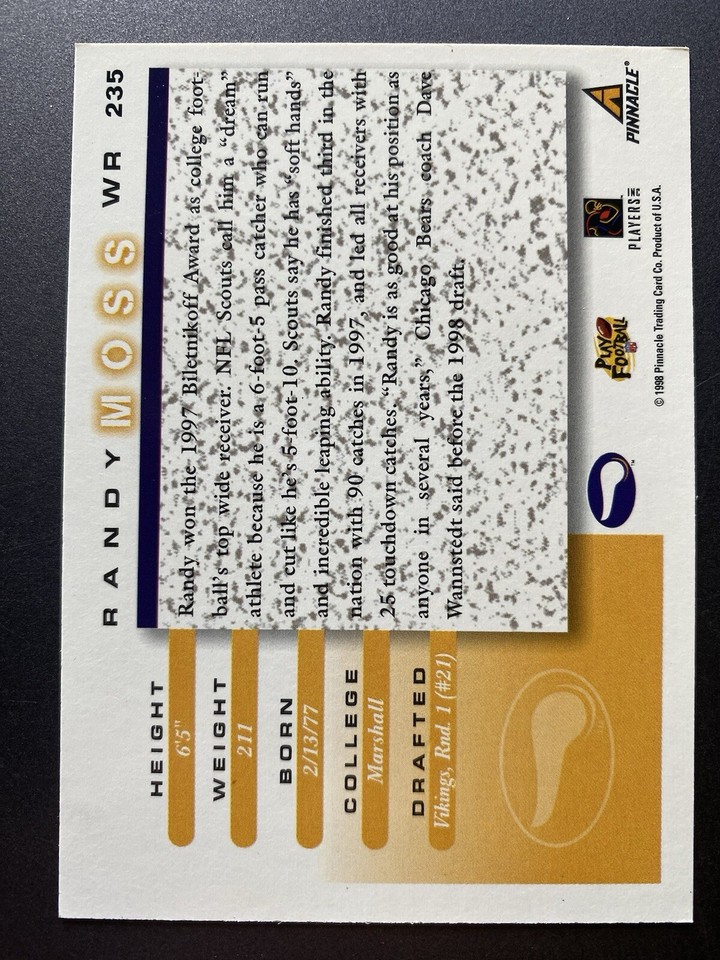 RANDY MOSS WR 235
HEIGHT
6'5"
WEIGHT
211
BORN
2/13/77
COLLEGE
Marshall
DRAFTED
Vikings, Rnd. 1 (#21)
Randy won the 1997 Biletnikoff Award as college foot-
ball's top wide receiver. NFL Scouts call him a “dream”
athlete because he is a 6-foot-5 pass catcher who can run
and cut like he's 5-foot-10. Scouts say he has “soft hands”
and incredible leaping ability. Randy finished third in the
nation with 90 catches in 1997, and led all receivers with
25 touchdown catches. “Randy is as good at his position as
anyone in several years,” Chicago Bears coach Dave
Wannstedt said before the 1998 draft.
TM
PLAY
FOOTBALL
NFL
PLAYERS INC
PINNACLE®
© 1998 Pinnacle Trading Card Co. Product of U.S.A.